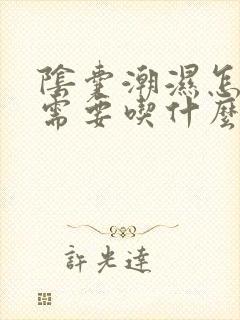 陰囊潮濕怎
需要喫什麼
許光達